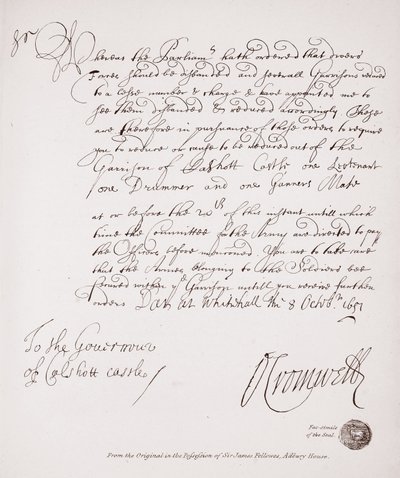 Sr
Whereas the Parliamt hath ordered that divers
Forces should be disbanded and severall Garrisons reduced
to a lesse number & charge & have appointed me to
see them disbanded & reduced accordingly These
are therefore in pursuance of those orders to require
you to reduce or cause to be reduced out of the
Garrison of Calshott Castle one Lieutenant
one Drummer and one Gunners Mate
at or before the 20th of this instant untill which
time the Committee for the Army are directed to pay
the Officers before mencioned. You are to take care
that the Armes belonging to the Soldiers bee
secured within ye Garrison untill you receive further
orders Dat at Whitehall the 8 Octobr 1651
To the Governour
of Calshott Castle
O Cromwell
Fac-simile
of the Seal.
From the Original in the Possession of Sir James Fellowes, Adbury House.